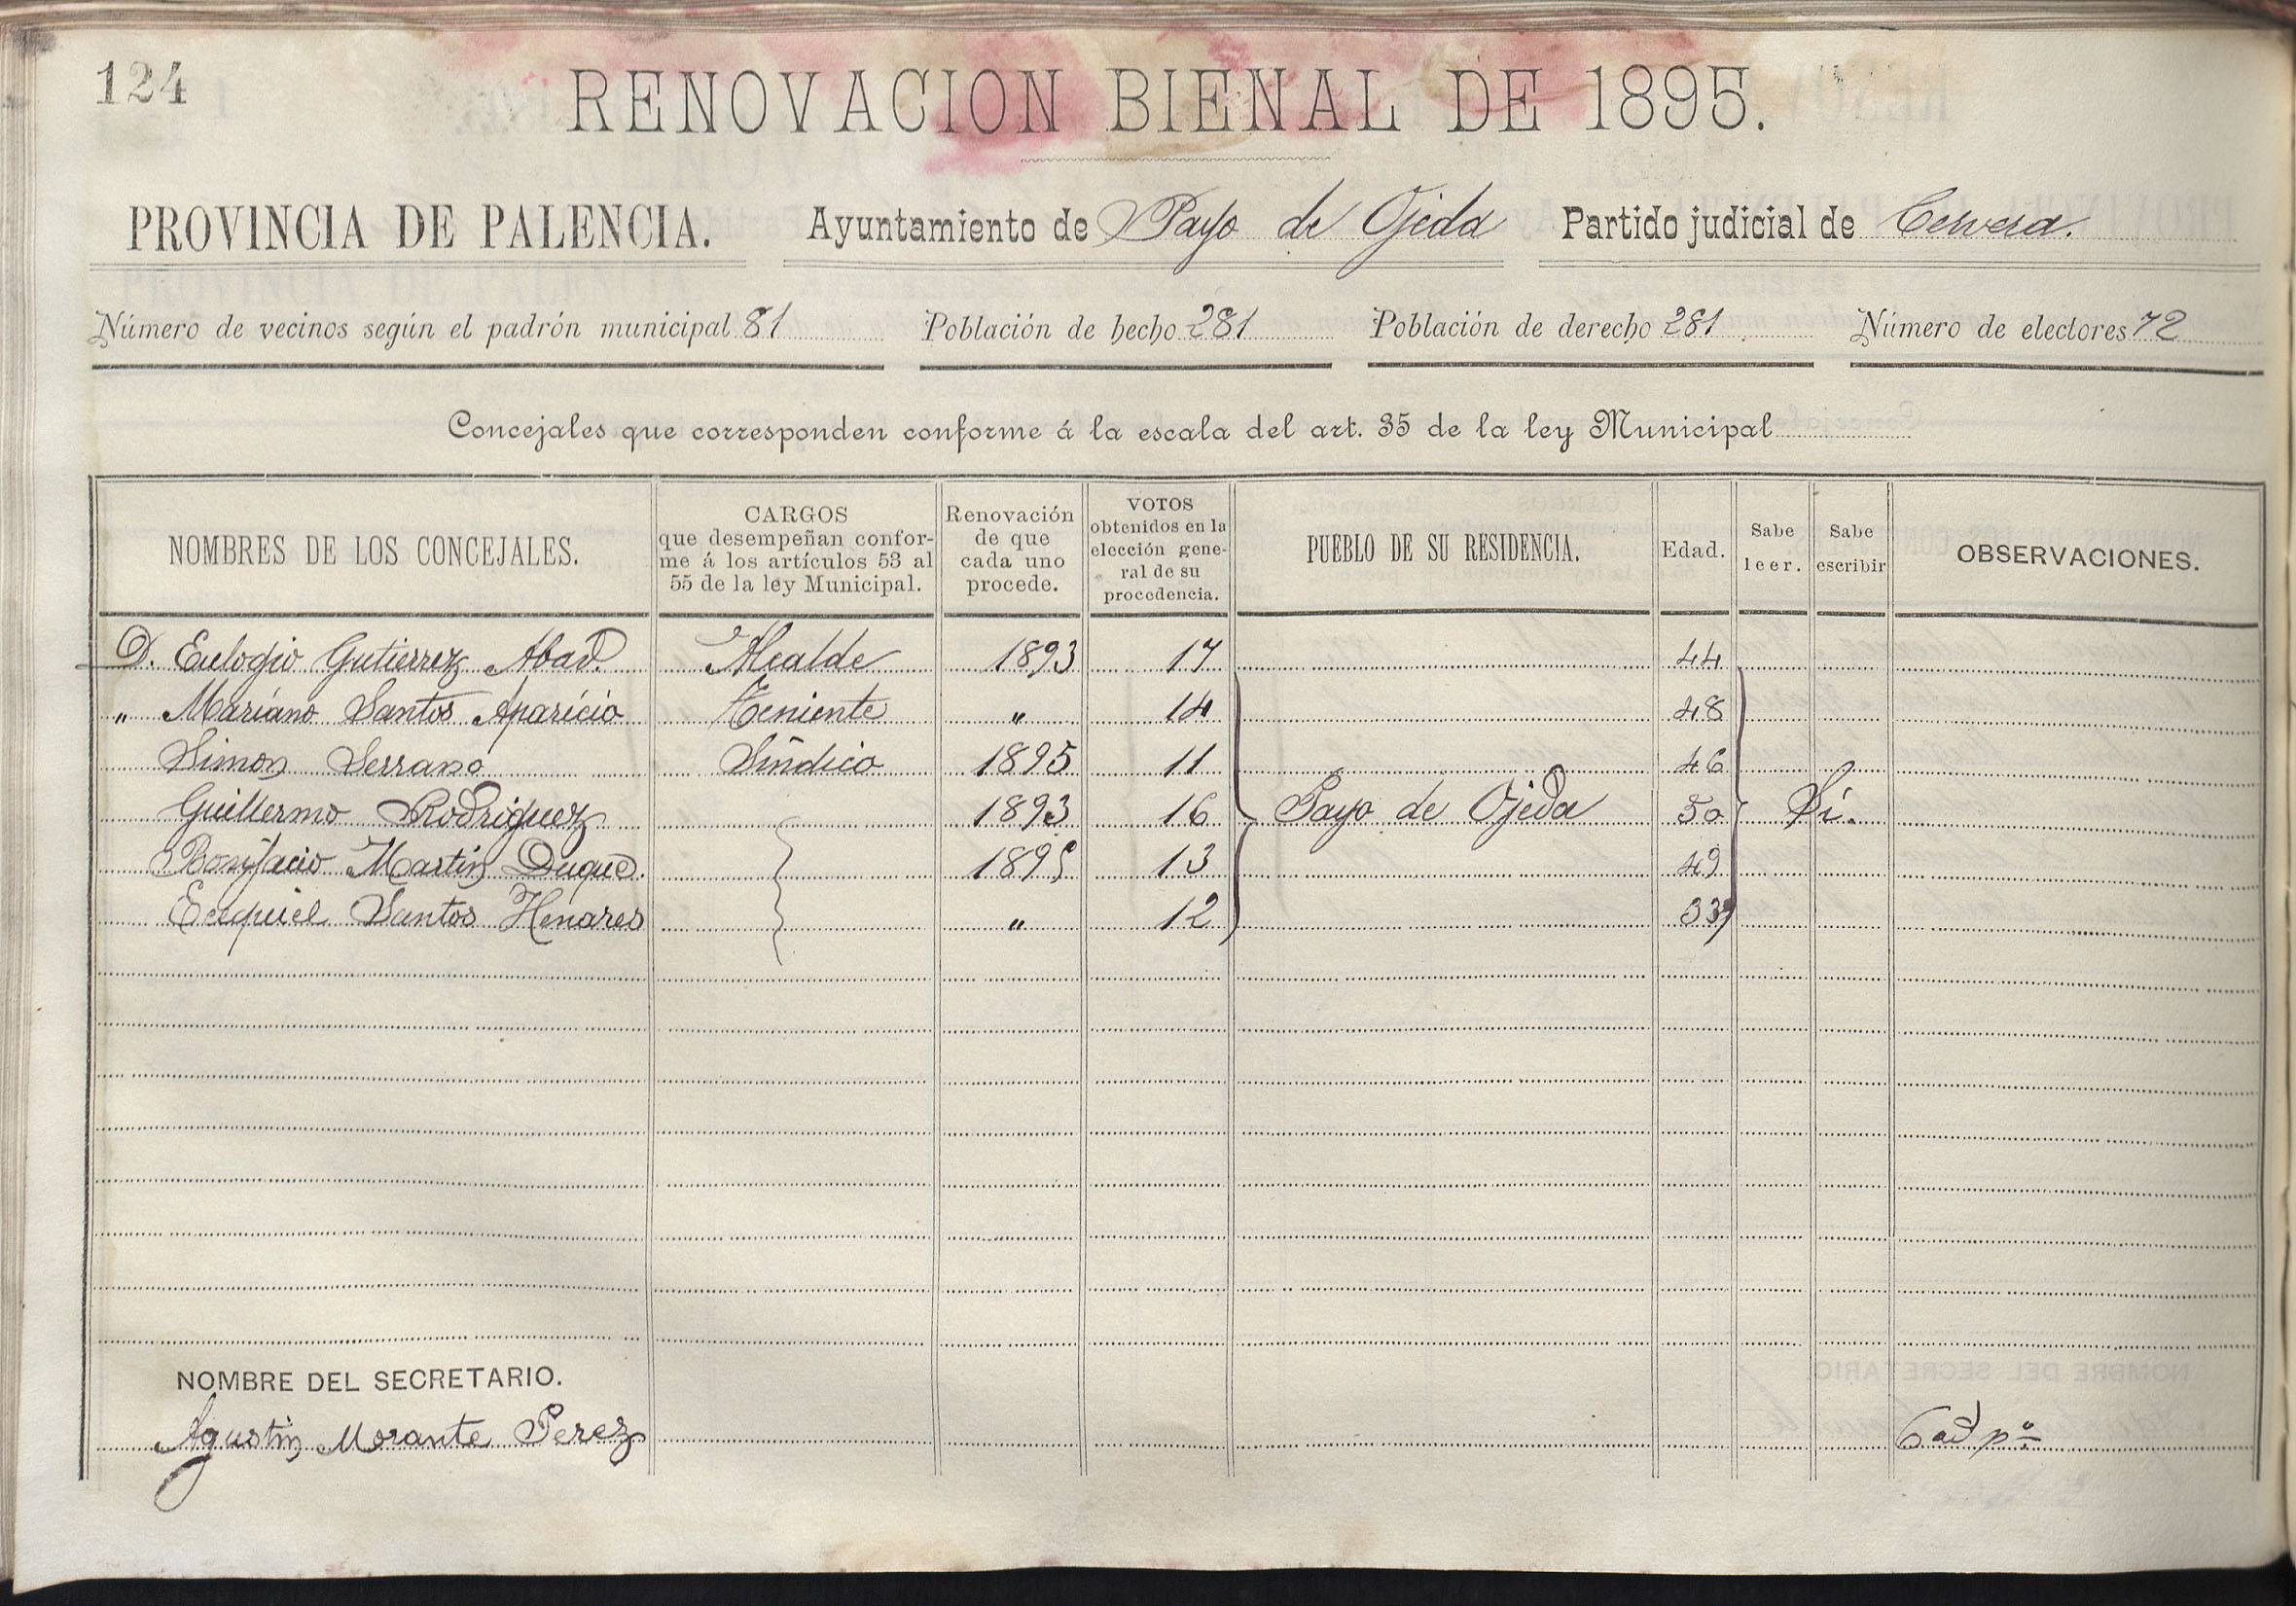 124
RENOVACION BIENAL DE 1895.
PROVINCIA DE PALENCIA. Ayuntamiento de Payo de Ojeda Partido judicial de Cervera.
Número de vecinos según el padrón municipal 81 Población de hecho 281 Población de derecho 281 Número de electores 72
Concejales que corresponden conforme á la escala del art. 35 de la ley Municipal
NOMBRES DE LOS CONCEJALES.
CARGOS
que desempeñan confor-
me á los artículos 53 al
55 de la ley Municipal.
Renovación
de que
cada uno
procede.
VOTOS
obtenidos en la
elección gene-
ral de su
procedencia.
PUEBLO DE SU RESIDENCIA.
Edad.
Sabe
leer.
Sabe
escribir
OBSERVACIONES.
D. Eulogio Gutierrez Abad. Alcalde 1893 17 44
„ Mariano Santos Aparicio Teniente „ 14 48
Simon Serrano Síndico 1895 11 46
Guillermo Rodriguez 1893 16 Payo de Ojeda 50 Sí.
Bonifacio Martin Duque. 1895 13 49
Ecequiel Santos Henares „ 12 33
NOMBRE DEL SECRETARIO.
Agustin Morante Perez